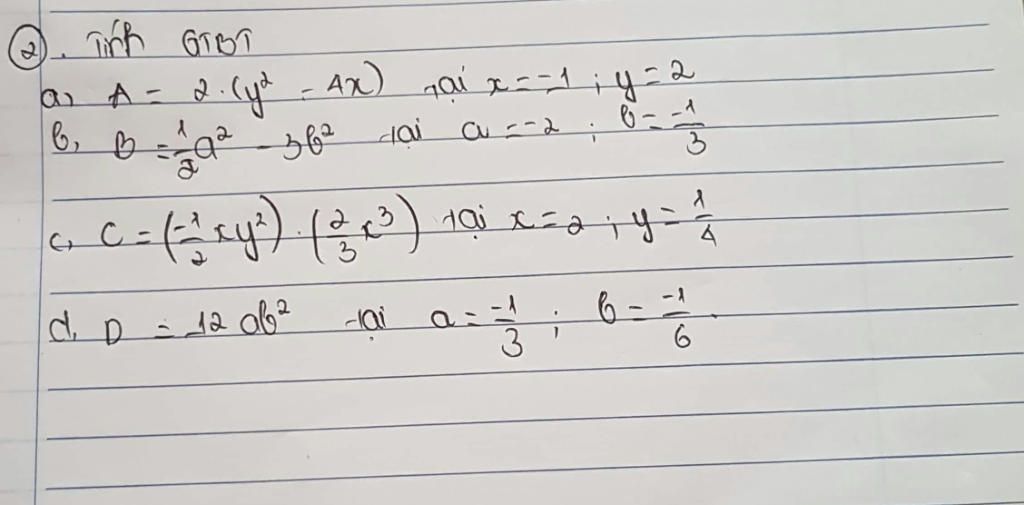 ②. Tính GTBT
a, A = 2.(y² - 4x) tại x = -1 ; y = 2
b, B = 1/2 a² - 3b² tại a = -2 ; b = -1/3
c, C = (-1/2 xy²).(2/3 x³) tại x = 2 ; y = 1/4
d, D = 12 ab² tại a = -1/3 ; b = -1/6.